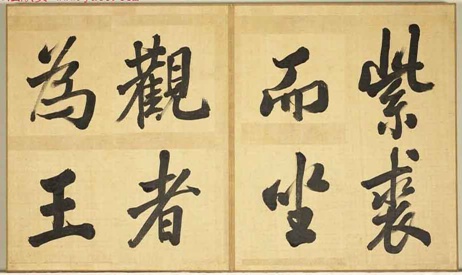 紫裘
而坐
觀者
為王